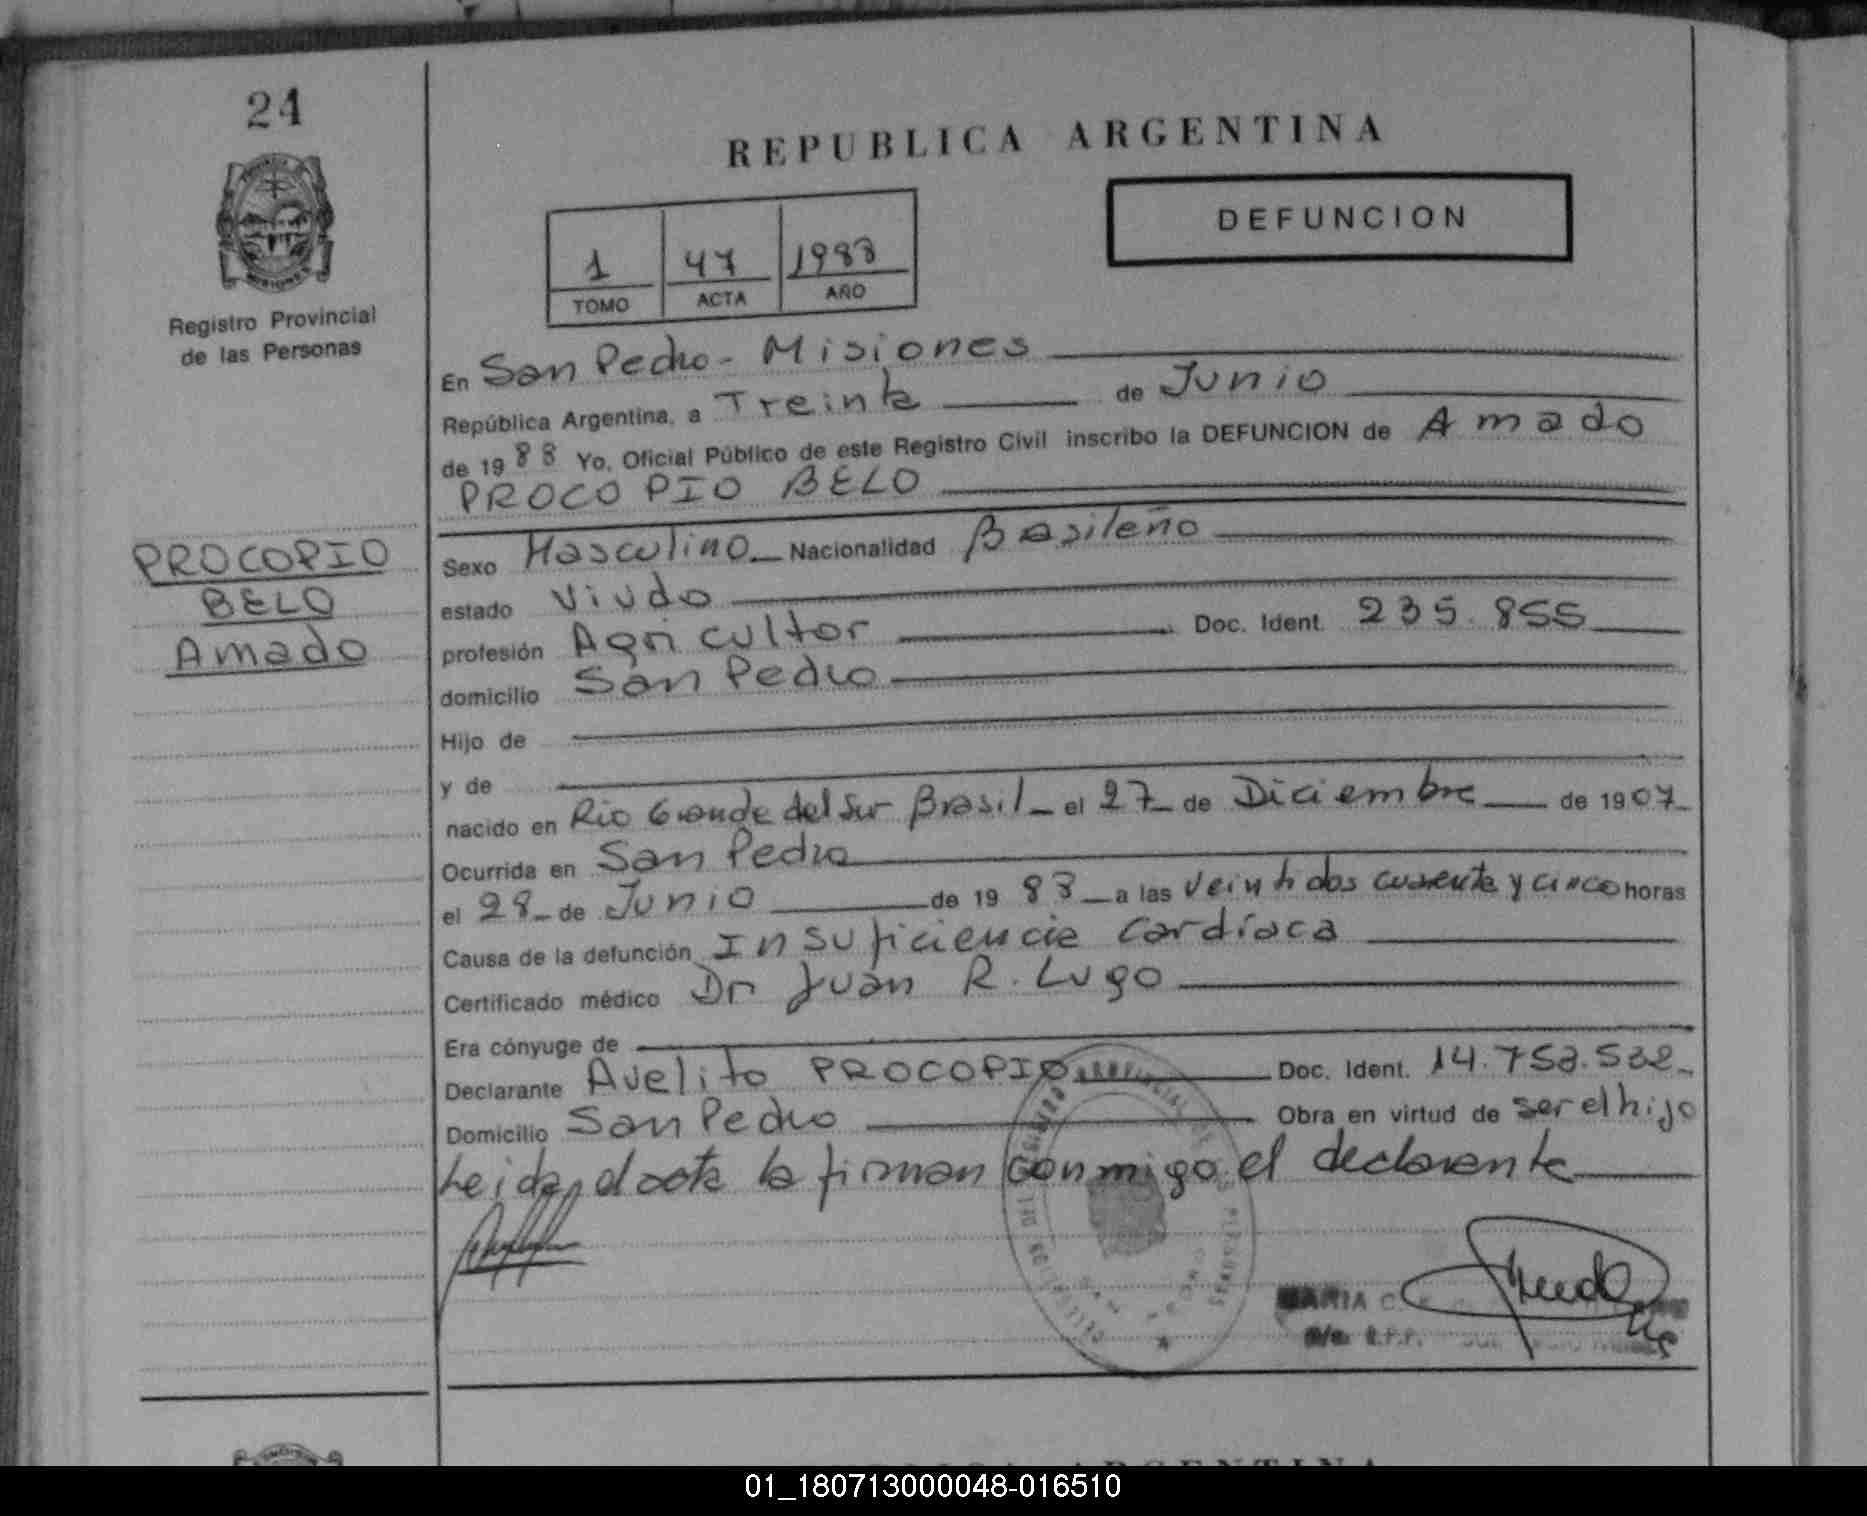 24
REPUBLICA ARGENTINA
DEFUNCION
1 47 1988
TOMO ACTA AÑO
Registro Provincial
de las Personas
En San Pedro - Misiones
República Argentina, a Treinta de Junio
de 1988 Yo, Oficial Público de este Registro Civil inscribo la DEFUNCION de Amado
PROCOPIO BELO
PROCOPIO
BELO
Amado
Sexo Masculino Nacionalidad Brasileño
estado Viudo
profesión Agricultor Doc. Ident. 235.855
domicilio San Pedro
Hijo de
y de
nacido en Rio Grande del Sur Brasil - el 27 - de Diciembre de 1907
Ocurrida en San Pedro
el 28 - de Junio de 1988 a las Veintidos cuarenta y cinco horas
Causa de la defunción Insuficiencia Cardíaca
Certificado médico Dr Juan R. Lugo
Era cónyuge de
Declarante Avelito PROCOPIO Doc. Ident. 14.753.532
Domicilio San Pedro Obra en virtud de ser el hijo
Leida el acta la firman conmigo el declarante
MARIA C.
01_180713000048-016510